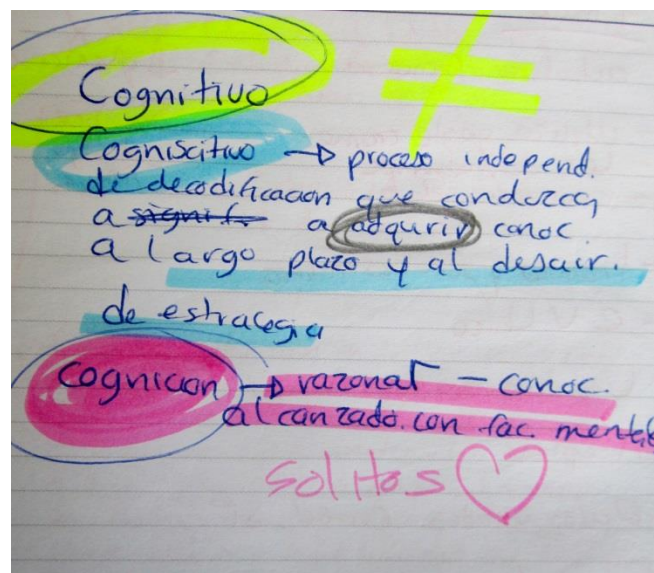 Cognitivo ≠
Cogniscitivo → proceso independ.
de decodificacion que conduzca
a signif. a adqurir conoc
a largo plazo y al desair.
de estrategia
Cognicion → razonar - conoc.
alcanzado.con fac. mental
Solitos ♡